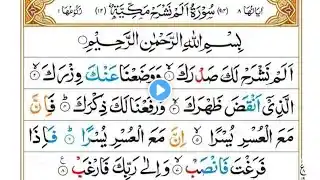 اٰیاتھا ٨ (٩٤) سُوْرَۃُ اَلَمْ نَشْرَحْ مَکِّیَّۃٌ (١٢) رکوعھا ١
بِسْمِ اللهِ الرَّحْمٰنِ الرَّحِيْمِ
اَلَمْ نَشْرَحْ لَكَ صَدْرَكَ ۙ وَوَضَعْنَا عَنْكَ وِزْرَكَ ۙ
الَّذِیْۤ اَنْقَضَ ظَهْرَكَ ۙ وَرَفَعْنَا لَكَ ذِكْرَكَ ؕ فَاِنَّ
مَعَ الْعُسْرِ يُسْرًا ۙ اِنَّ مَعَ الْعُسْرِ يُسْرًا ؕ فَاِذَا
فَرَغْتَ فَانْصَبْ ۙ وَاِلٰى رَبِّكَ فَارْغَبْ